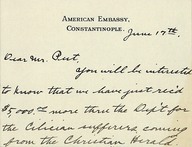 AMERICAN EMBASSY,
CONSTANTINOPLE.
June 17th.
Dear Mr. Peet,
You will be interested
to know that we have just rec'd
$5,000 00 more thru the Dep't for
the Cilician sufferers, coming
from the Christian Herald.